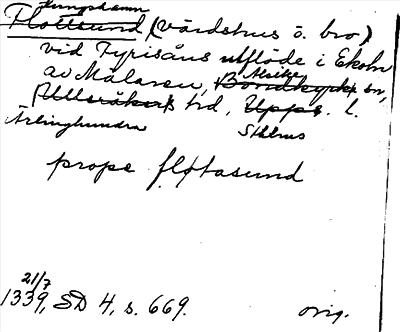 Kungshamn
Flottsund (värdshus o. bro)
vid Fyrisåns utflöde i Ekoln
av Mälaren, Bondkyrk sn,
Alsike
(Ulleråkers hd, Upps. l.
Ärlinghundra Sthlms
prope fløtasund
21/7
1339, SD 4, s. 669. orig.